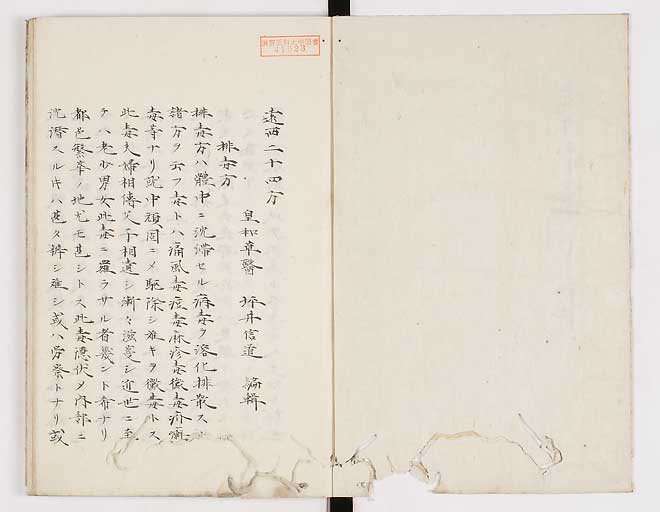 遠西二十四方
皇和草醫 坪井信道 編輯
排毒方
排毒方ハ體中ニ沈滞セル病毒ヲ溶化排散スル
諸方ヲ云フ毒トハ痛風毒疫毒麻疹毒黴毒疥癬
毒等ナリ就中頑固ニメ駆除シ難キヲ黴毒トス
此毒夫婦相傳父子相遺シ漸々滋蔓シ近世ニ至
テハ老少男女此毒ニ羅ラサル者幾ント希ナリ
都邑繁華ノ地尤モ甚シトス此毒隠伏メ内部ニ
沈潜スル片ハ甚タ辨シ難シ或ハ労瘵トナリ或
41023